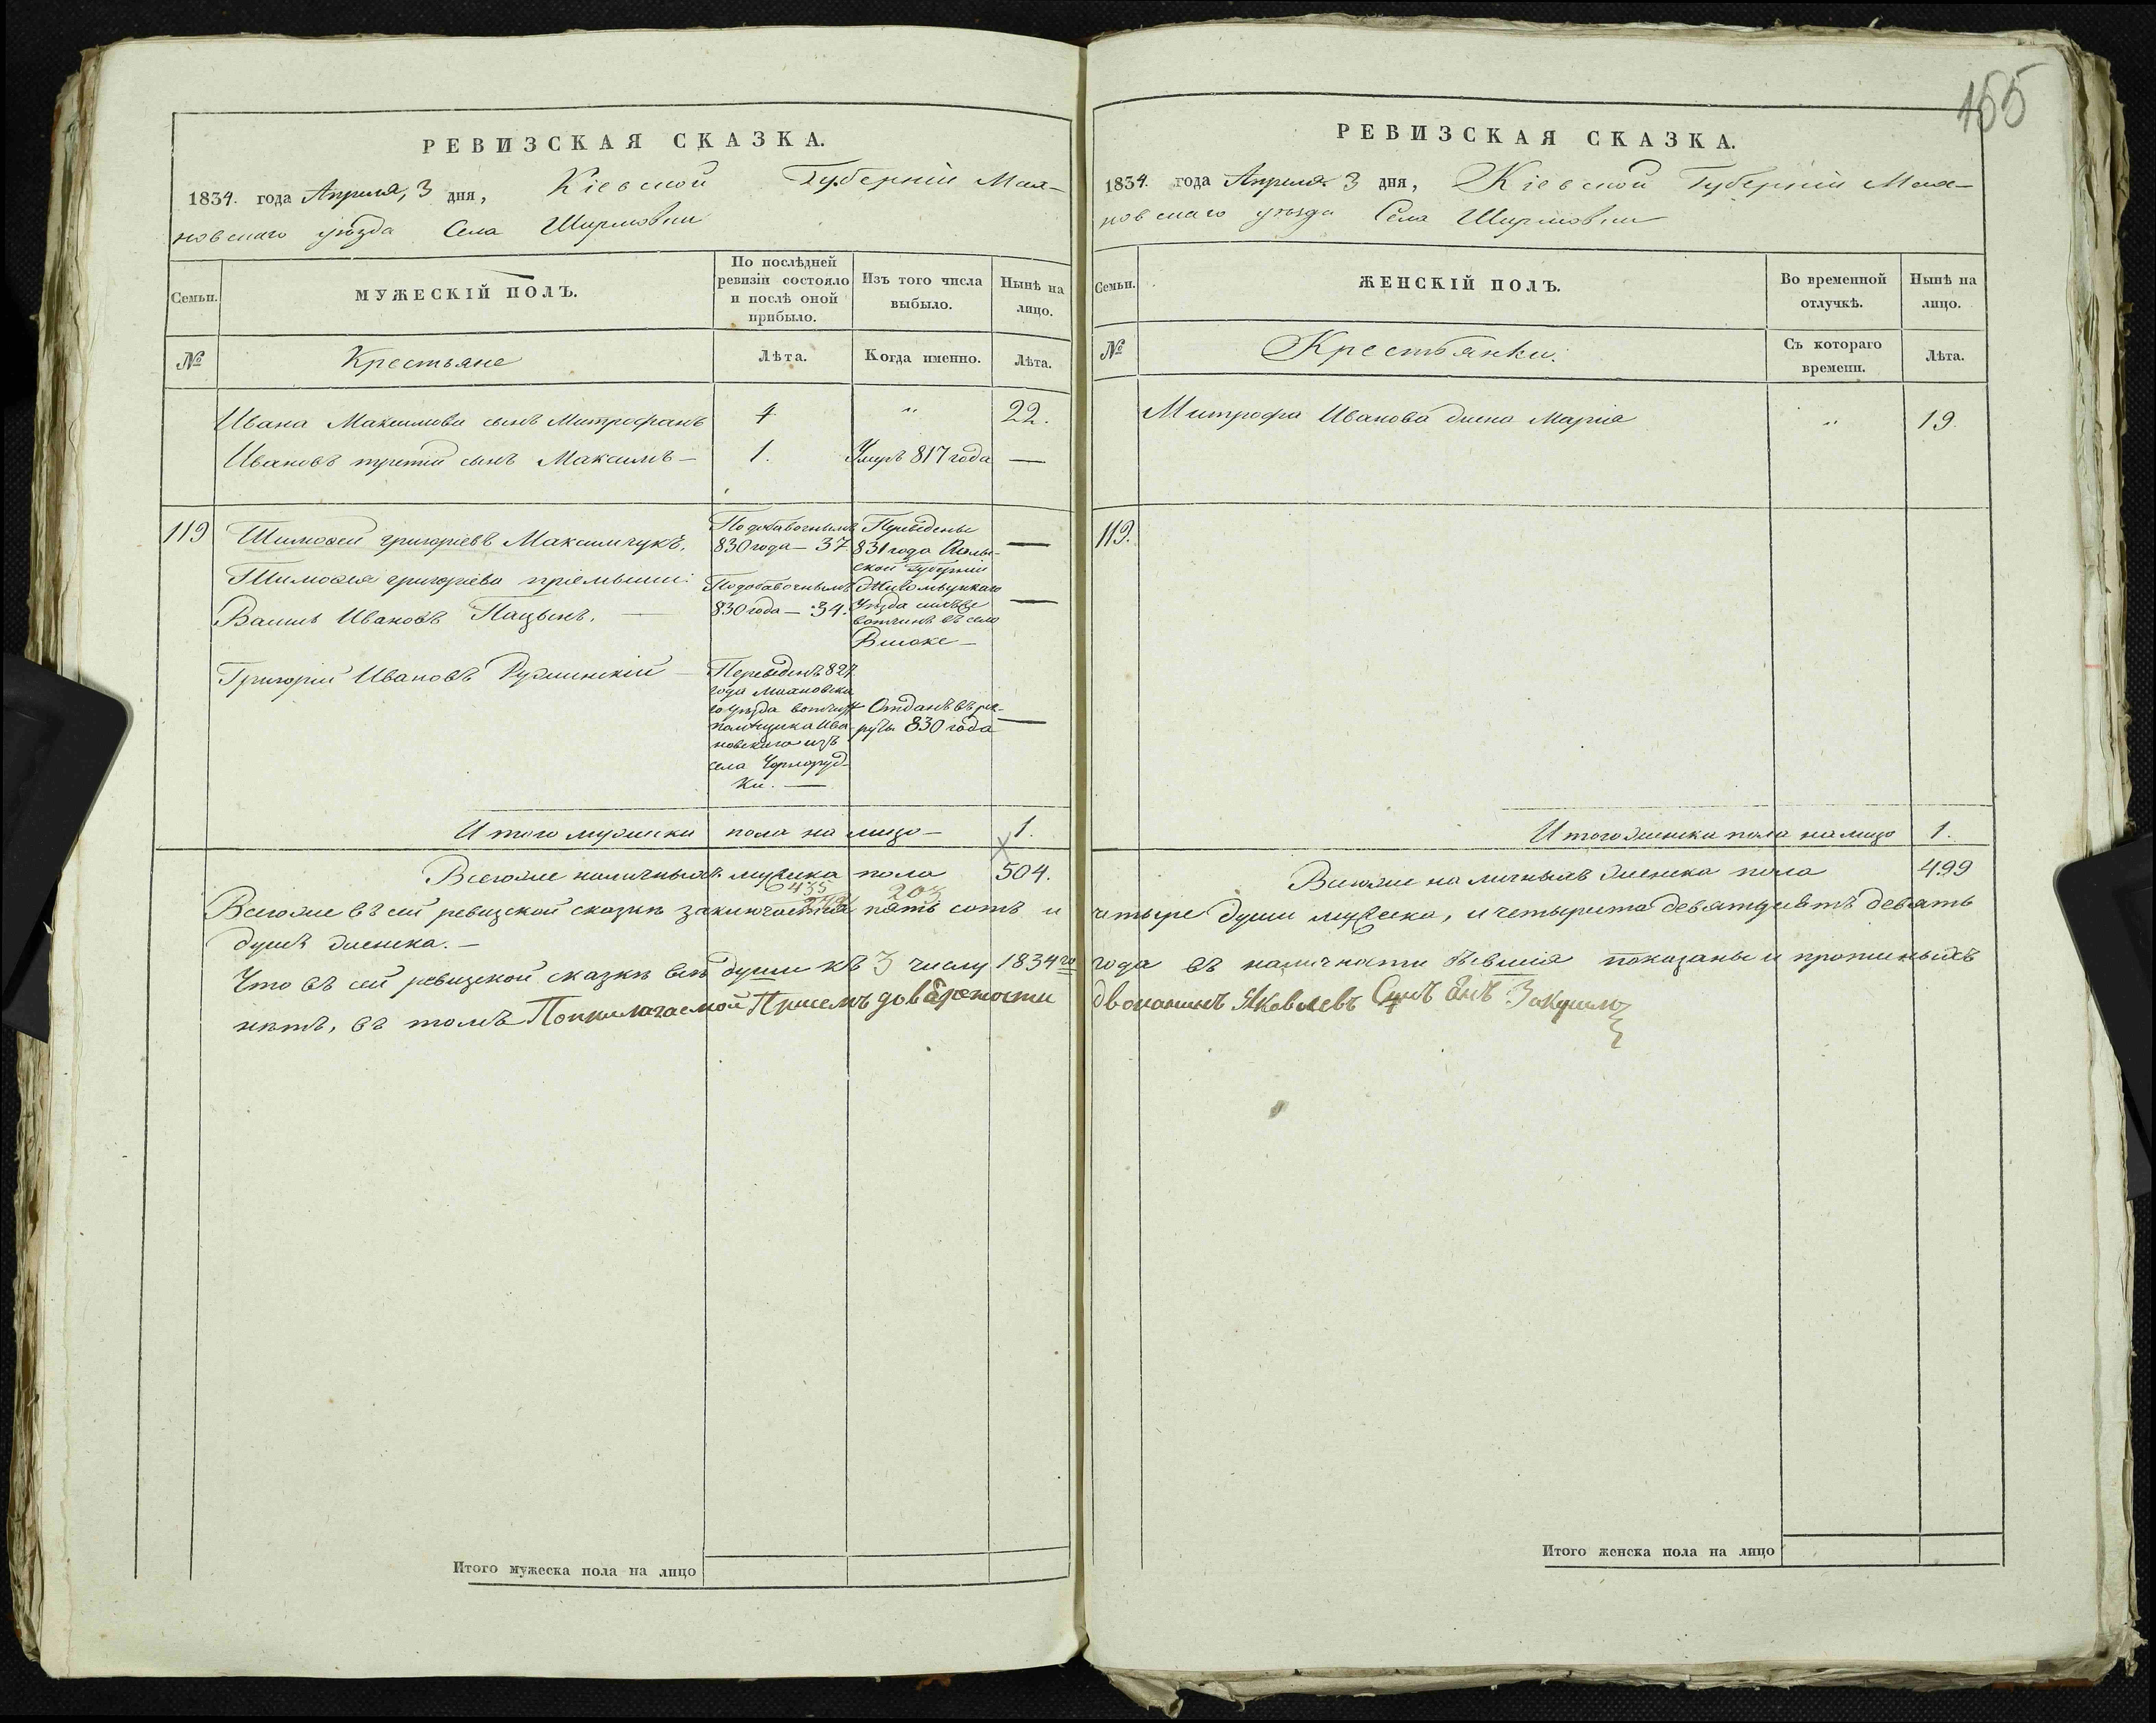 РЕВИЗСКАЯ СКАЗКА.
1834. года Апреля, 3 дня, Кіевской Губерніи Мах-
новскаго уѣзда Села Ширмовки
Семьи.
МУЖЕСКІЙ ПОЛЪ.
По послѣдней
ревизіи состояло
и послѣ оной
прибыло.
Изъ того числа
выбыло.
Нынѣ на
лицо.
№
Крестьяне
Лѣта.
Когда именно.
Лѣта.
Ивана Максимова сынъ Митрофанъ 4 " 22.
Ивановъ третій сынъ Максимъ — 1. Умеръ 817 года —
119 Тимофей григорьевъ Максимчукъ.
По добавочнымъ
830 года — 37
Тимофея григорьева пріемыши:
Василь Ивановъ
По добавочнымъ
830 года — 34.
Переведены
831 года
ской Губерніи
Житомырскаго
Уѣзда
вотчинѣ въ село
—
—
Григорій Ивановъ —
Переведенъ 827
года Махновска
го уѣзда вотчины
помѣщика Ива-
новскаго изъ
села Чорноруд-
ки. —
Отданъ въ рек-
руты 830 года
—
Итого мужеска пола на лицо — 1.
Всегоже наличныхъ мужеска пола 504.
435
203
Всегоже въ сей ревизской сказки заключается пять сотъ и
душъ женска. —
Что въ сей ревизской сказки всѣ души къ 3 числу 1834 го
нѣтъ, въ томъ По прилагаемой Присемъ довѣрености
Итого мужеска пола на лицо
155
РЕВИЗСКАЯ СКАЗКА.
1834. года Апреля 3 дня, Кіевской Губерніи Мах-
новскаго уѣзда Села Ширмовки
Семьи.
ЖЕНСКІЙ ПОЛЪ.
Во временной
отлучкѣ.
Нынѣ на
лицо.
№
Крестьянки.
Съ котораго
времени.
Лѣта.
Митрофа Иванова жена Марія " 19
119.
Итого женска пола на лицо 1.
Всегоже наличныхъ женска пола 499
четыре души мужеска, и четыриста девятдевятъ девять
года въ наличности бывшія показаны и прописныхъ
дворянинъ Яковлевъ Сынъ
Итого женска пола на лицо